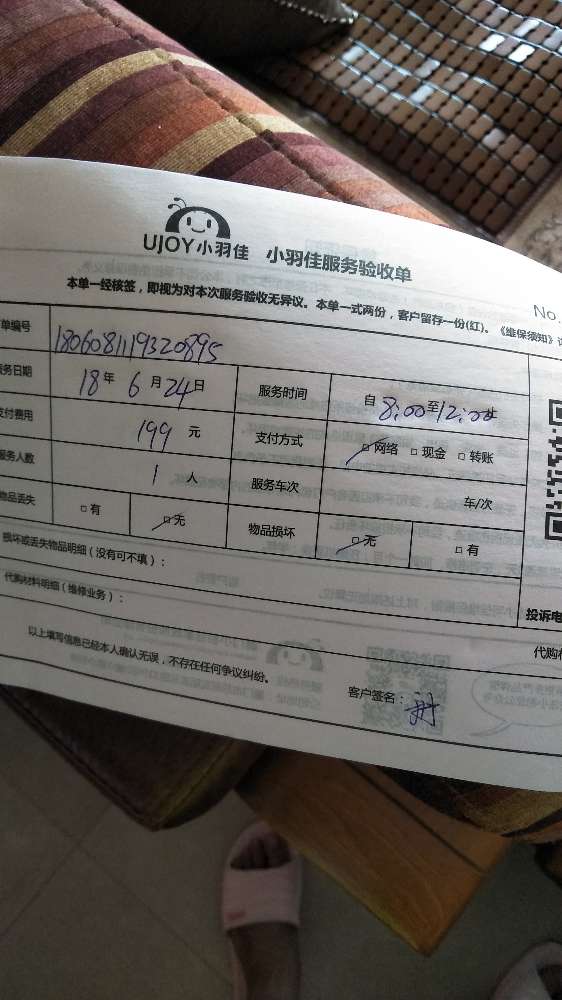 UJOY小羽佳 小羽佳服务验收单
No.
本单一经核签，即视为对本次服务验收无异议。本单一式两份，客户留存一份(红)。《维保须知》
单编号 1806081119320895
服务日期 18年 6月 24日 服务时间 自 8:00至12:00止
支付费用 199 元 支付方式 □网络 □现金 □转账
服务人数 1 人 服务车次 车/次
物品丢失 □有 □无 物品损坏 □无 □有
损坏或丢失物品明细（没有可不填）：
代购材料明细（维修业务）：
投诉电
代购
以上填写信息已经本人确认无误，不存在任何争议纠纷。
客户签名：